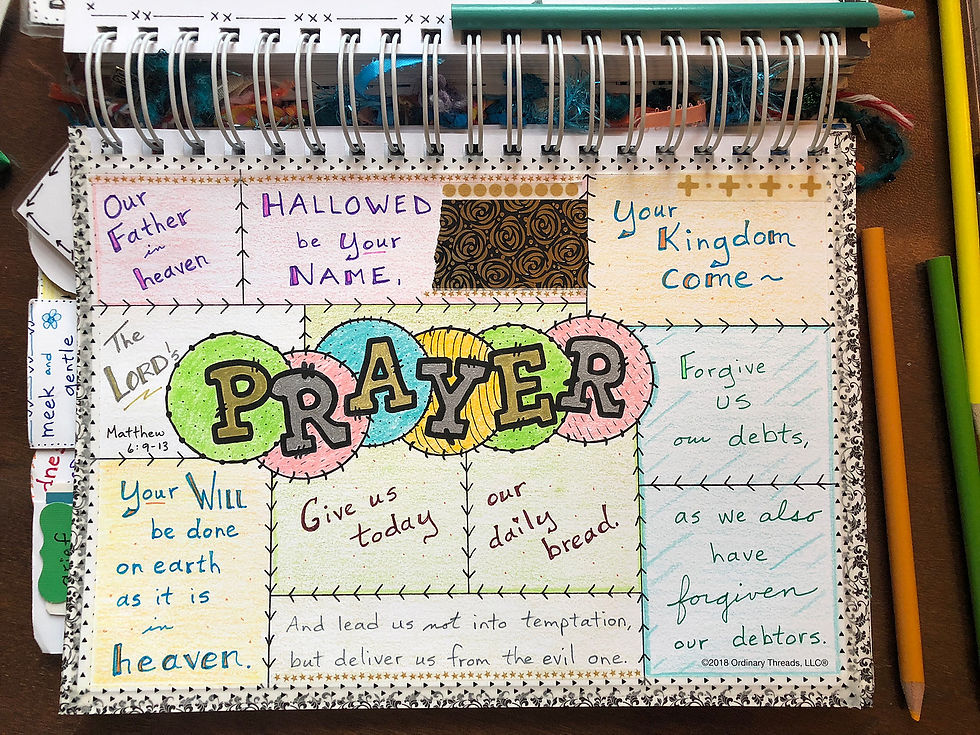 Our
Father
in
heaven
HALLOWED
be your
NAME.
Your
Kingdom
come ~
The
LORD's
PRAYER
Matthew
6:9-13
Your WILL
be done
on earth
as it is
in
heaven.
Give us
today
our
daily
bread.
Forgive
us
our debts,
as we also
have
forgiven
our debtors.
And lead us not into temptation,
but deliver us from the evil one.
©2018 Ordinary Threads, LLC®
meek and
gentle